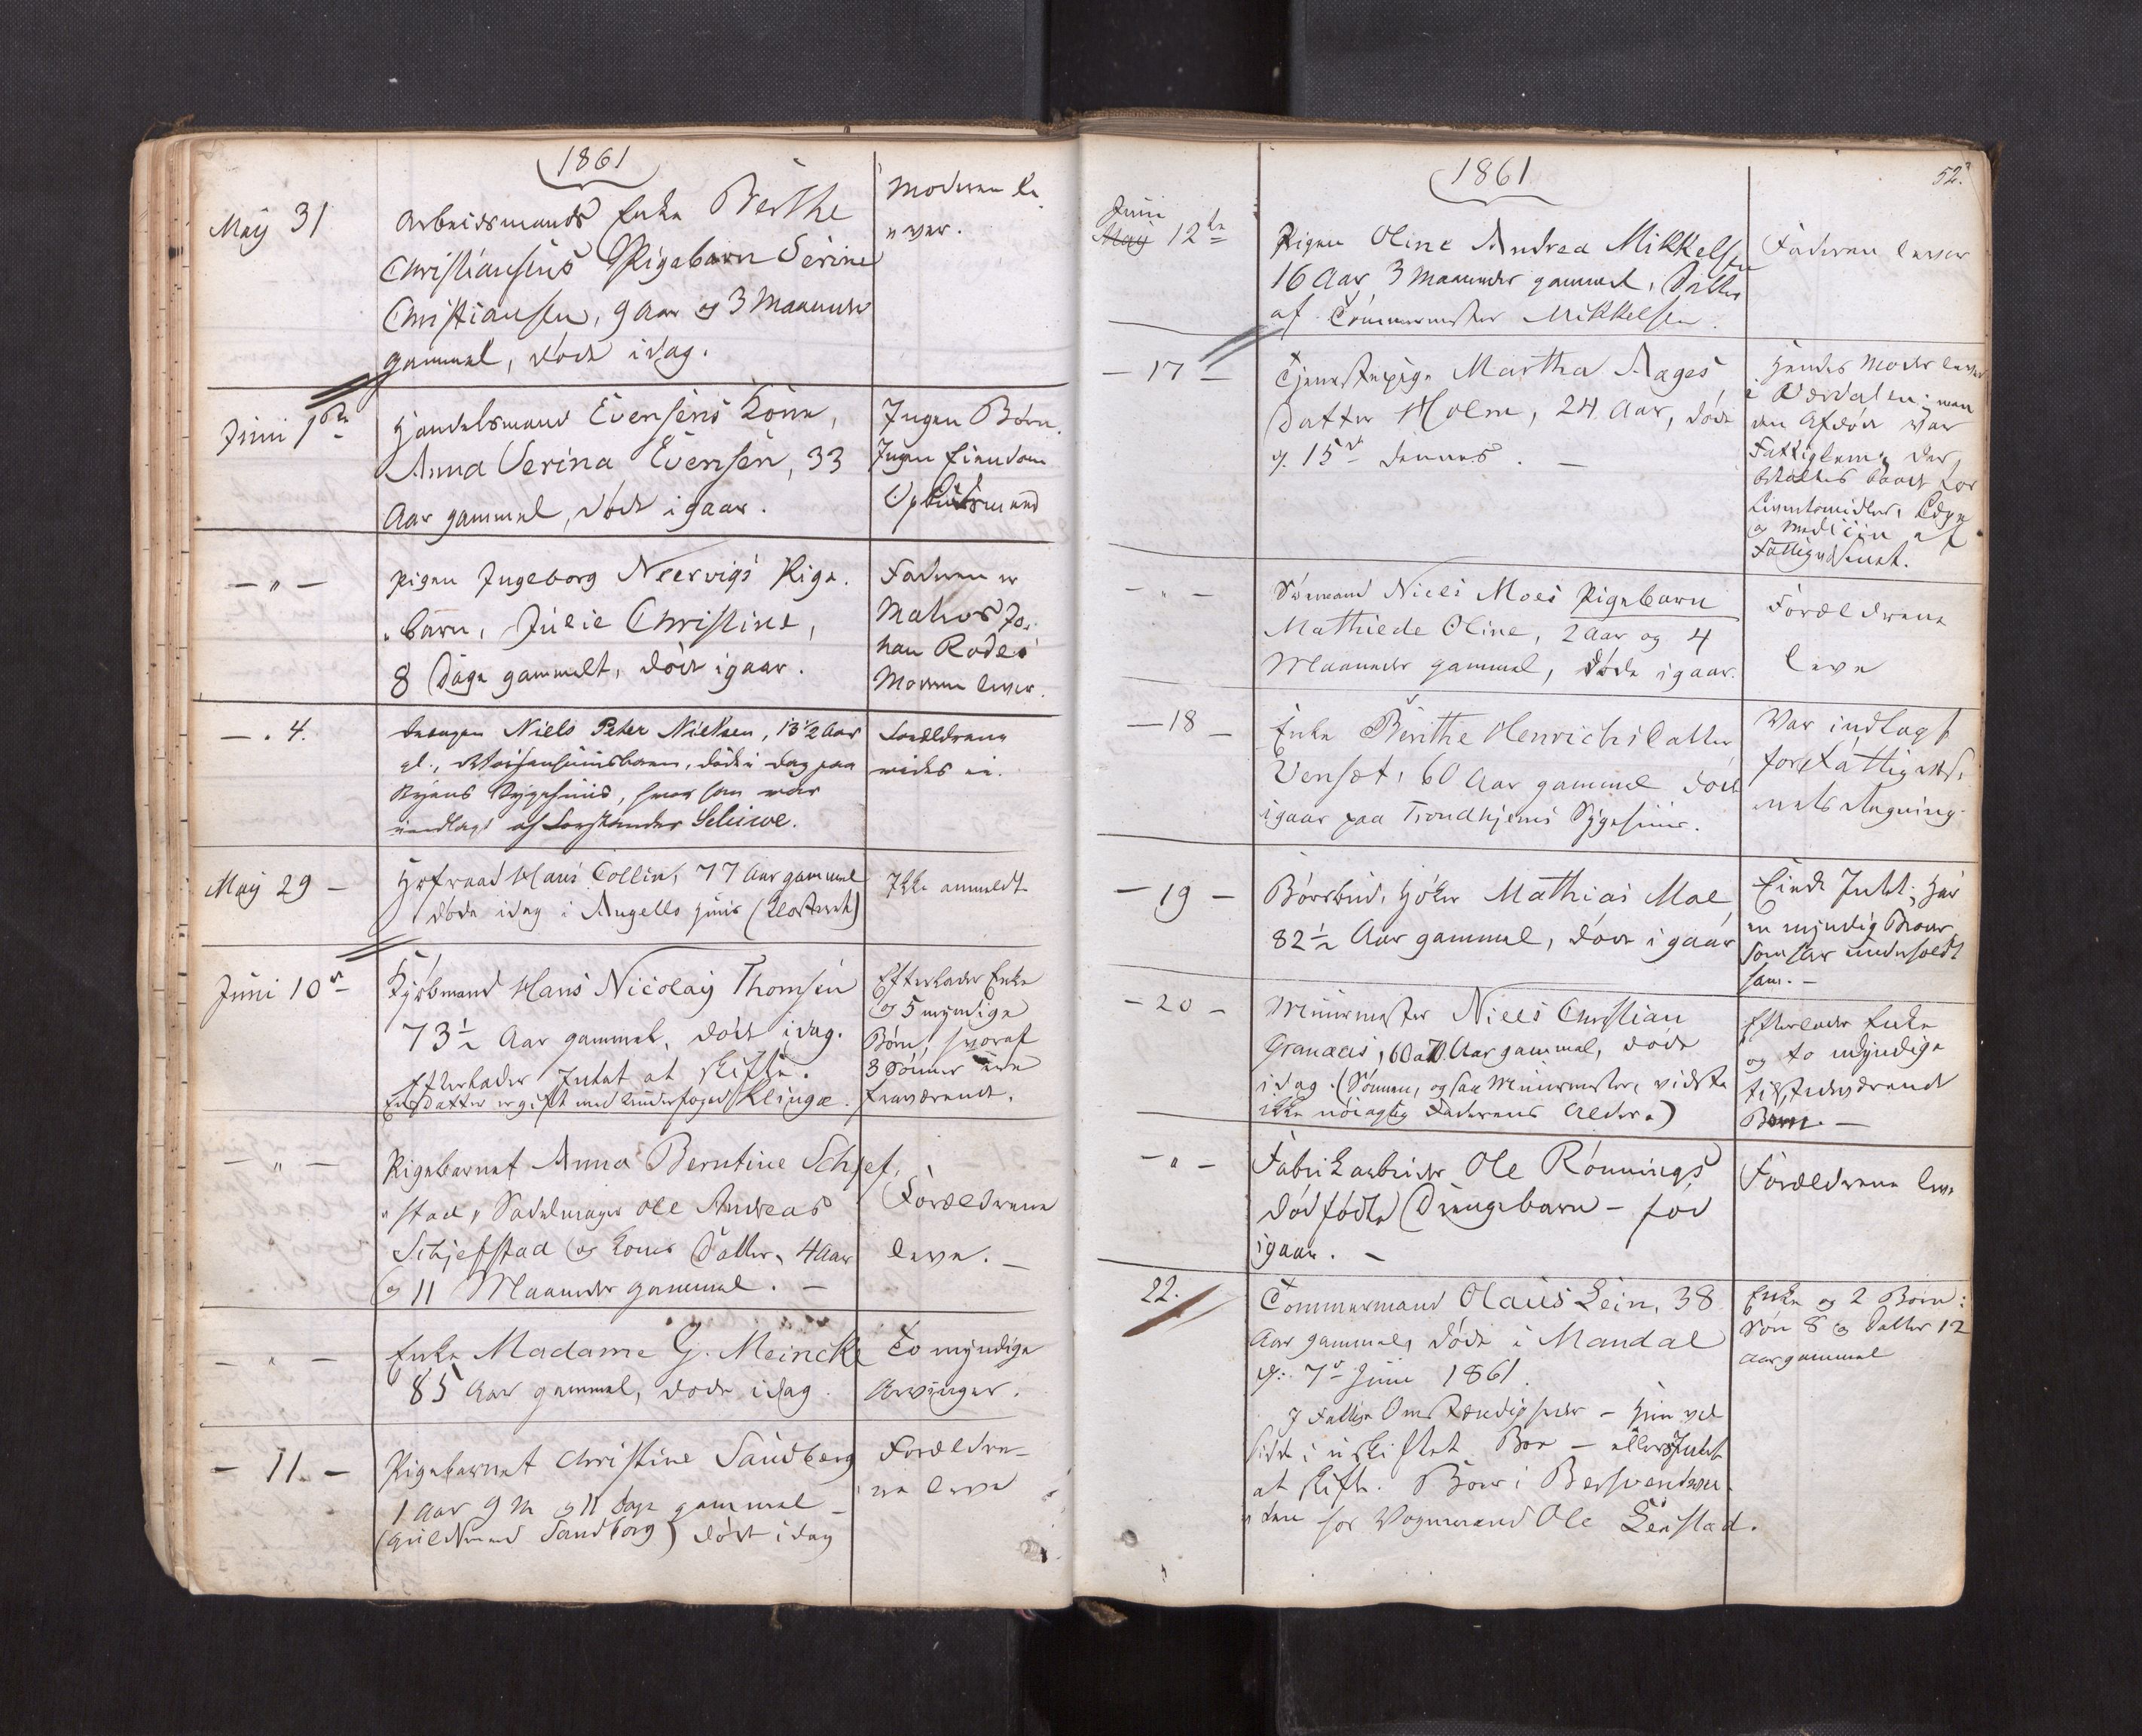 1861
May 31
Arbeidsmands Enke Berthe
Christiansens Pigebarn Serine
Christiansen, 9 Aar og 3 Maaneder
gammel, døde idag.
Moderen le
"ver.
Juni 1ste
Handelsmand Evensens Kone,
Anna Verina Evensen, 33
Aar gammel, døde igaar.
Ingen Børn.
Ingen Eiendom
Opbudsmand
— " —
Pigen Ingeborg Neervigs Pige.
"barn, Julie Christine,
8 Dage gammelt, døde igaar.
Faderen er
Matros Jo-
han Rodes
Moderen lever.
— " 4.
Drengen Niels Peter Nielsen, 13 1/2 Aar
gl., Waisenhuusbarn, døde i dag paa
Byens Sygehuus, hvor han var
indlagt af Forstander Schive.
Forældrene
vides ei.
May 29 —
Hofraad Hans Collin, 77 Aar gammel
døde idag i Angells Huus (Klostret)
Ikke anmeldt
Juni 10de
Kjøbmand Hans Nicolay Thomsen
73 1/2 Aar gammel, døde idag.
Efterlader Intet at skifte.
En Datter er gift med Underfoged Klingæ.
Efterlader Enke
og 5 myndige
Børn, hvoraf
3 Sønner ere
fraværende.
— " —
Pigebarnet Anna Berntine Schjef,
"stad, Sadelmager Ole Andreas
Schjefstad og Kones Datter, 4 Aar
og 11 Maaneder gammel. —
Forældrene
leve. —
— " —
Enke Madame G. Meincke
85 Aar gammel, døde idag.
To myndige
Arvinger.
— 11. —
Pigebarnet Christine Sandberg
1 Aar 9 M og 11 Dage gammel —
(Guldsmed Sandborg) døde idag
Forældre-
ne leve
52.
1861
Juni
May 12te
Pigen Oline Andrea Mikkelsen
16 Aar 3 Maaneder gammel, Datter
af Tømmermester Mikkelsen.
Faderen lever
— 17 —
Tjenestepige Martha Aages,
Datter Holm, 24 Aar, døde
d. 15de dennes. —
Hendes Moder lever
i Værdalen; men
den Afdøde var
Fattiglem, der
betaltes baade for
Levnetsmidler, Læge
og Medicin af
Fattigvæsenet.
— " —
Sømand Niels Moes Pigebarn
Mathilde Oline, 2 Aar og 4
Maaneder gammel, døde igaar.
Forældrene
leve
— 18 —
Enke Berithe Henrichsdatter
Venset, 60 Aar gammel døde
igaar paa Trondhjems Sygehuus.
Var indlagt
for Fattigvæse
nets Regning.
— 19 —
Børsbud, Høker Mathias Moe,
82 1/2 Aar gammel, døde igaar
Eiede Intet; har
en myndig Broder
som har underholdt
ham. —
— 20 —
Muurmester Niels Christian
Granaas, 60 a 70 Aar gammel, døde
idag. (Sønnen, ogsaa Muurmester, vidste
ikke nøiagtig Faderens Alder.)
Efterlader Enke
og to myndige
tilstedeværende
Børn. —
— " —
Fabrikarbeider Ole Rønnings
dødfødte Drengebarn — fød
igaar. —
Forældrene leve
22.
Tømmermand Olaus Lein, 38
Aar gammel, døde i Mandal
d. 7de Juni 1861.
I Fattige Omstændigheder — Hun vil
sidde i uskiftet Boe — eller Intet
at skifte. Boer i Bersvendvei
"ten hos Vognmand Ole Leinstad.
Enke og 2 Børn:
Søn 8 og Datter 12
Aar gammel